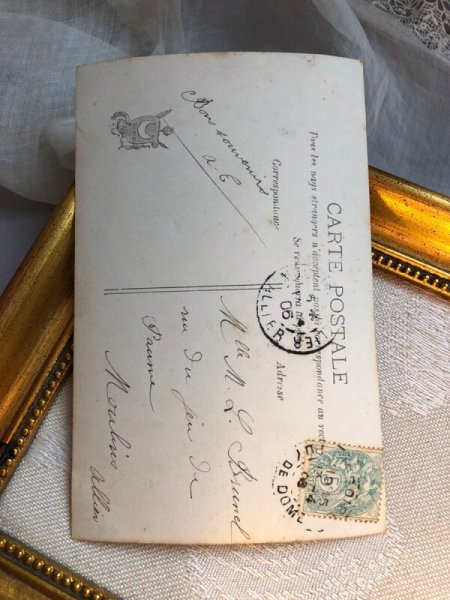 CARTE POSTALE
Tous les pays étrangers n'acceptent pas la correspondance au recto
Se renseigner
Correspondance
Adresse
Bon souvenirs
a. C
Mlle M. L. Brunel
rue du jeu de
Paume
Moulins
Allier
ALLIER
05
DE DOME